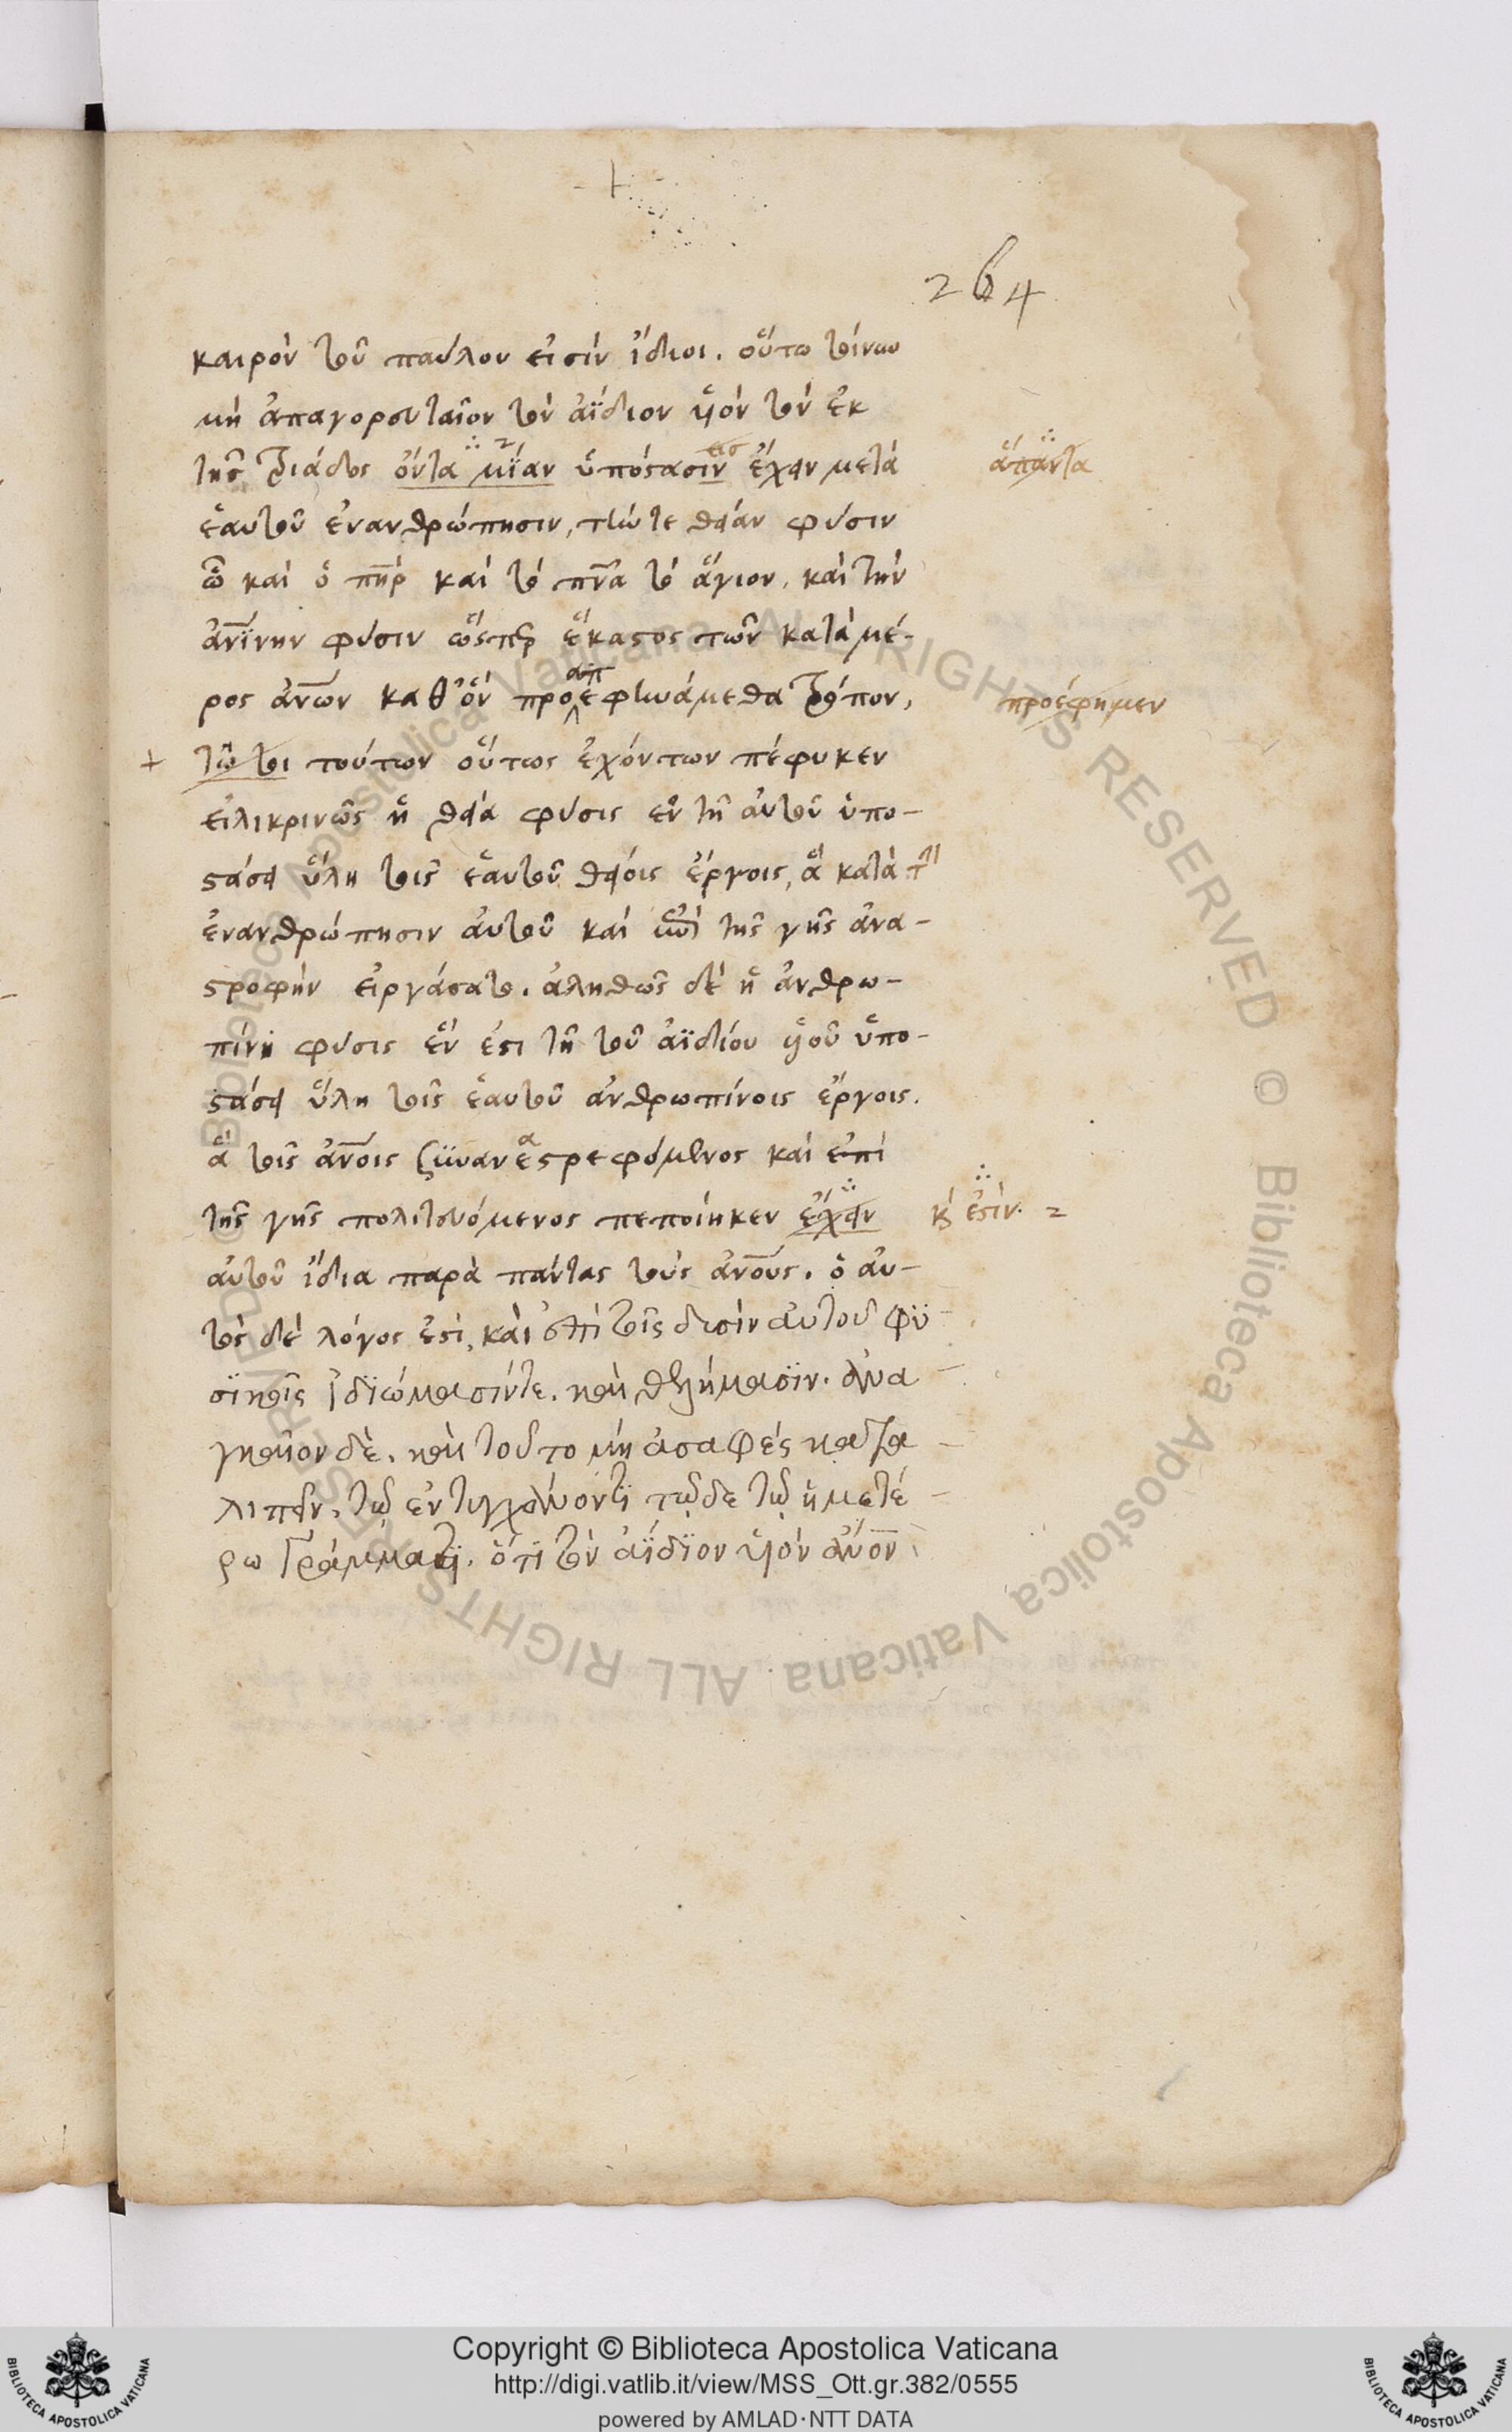 264
καιρὸν τοῦ παύλου εἰσὶν ἴδιοι. οὕτω τοίνυν
μὴ ἀπαγορευταῖον τὸν ἀΐδιον ϋἱὸν τὸν ἐκ
τῆς τριάδος ὄντα μΐαν ὑπόστασιν ἔχειν μετὰ ἅπαντα
ἑαυτοῦ ἐνανθρώπησιν, τήν τε θείαν φύσιν
ὧ καὶ ὁ πηρ καὶ τὸ πνα τὸ ἅγιον, καὶ τὴν
ἀνΐνην φύσιν ὥσπερ ἕκαστος τῶν κατὰ μέ-
ρος ἀνων καθ' ὃν προαπεφηνάμεθα τρόπον, προέφημεν
+ τῶ τοι τούτων οὕτως ἐχόντων πέφυκεν
εἰλικρινῶς ἡ θεία φύσις ἐν τῇ αὐτοῦ ὑπο-
στάσει ὕλη τοῖς ἑαυτοῦ θείοις ἔργοις, ἃ κατὰ τὴν
ἐνανθρώπησιν αὐτοῦ καὶ τῆς γῆς ἀνα-
στροφὴν εἰργάσατο. ἀληθῶς δὲ ἡ ἀνθρω-
πίνη φύσις ἕν ἐστι τῇ τοῦ ἀϊδίου ϋἱοῦ ὑπο-
στάσει ὕλη τοῖς ἑαυτοῦ ἀνθρωπίνοις ἔργοις.
ἃ τοῖς ἀνοις ξυναναστρεφόμενος καὶ ἐπὶ
τῆς γῆς πολιτευόμενος πεποίηκεν ἔχειν κ ἐστὶν. =
αὐτοῦ ἴδια παρὰ πάντας τοὺς ἀνους. ὁ αὐ-
τὸς δὲ λόγος ἐστὶ, καὶ ἐπὶ τοῖς δυσὶν αὐτοῦ φϋ-
σϊκοῖς ἰδϊώμασίντε. καὶ θελήμασϊν. ἀνα-
γκαῖον δὲ. καὶ τοῦτο μὴ ἀσαφὲς κατα-
λιπεῖν. τῷ ἐντυγχάνοντϊ τῷδε τῷ ἡμετέ-
ρω γράμματϊ. ὅτϊ τὸν ἀΐδϊον υἱὸν ἀνον
Copyright © Biblioteca Apostolica Vaticana
http://digi.vatlib.it/view/MSS_Ott.gr.382/0555
powered by AMLAD·NTT DATA
BIBLIOTECA APOSTOLICA VATICANA
BIBLIOTECA APOSTOLICA VATICANA
Biblioteca Apostolica Vaticana ALL RIGHTS RESERVED © Biblioteca Apostolica Vaticana ALL RIGHTS RESERVED ©